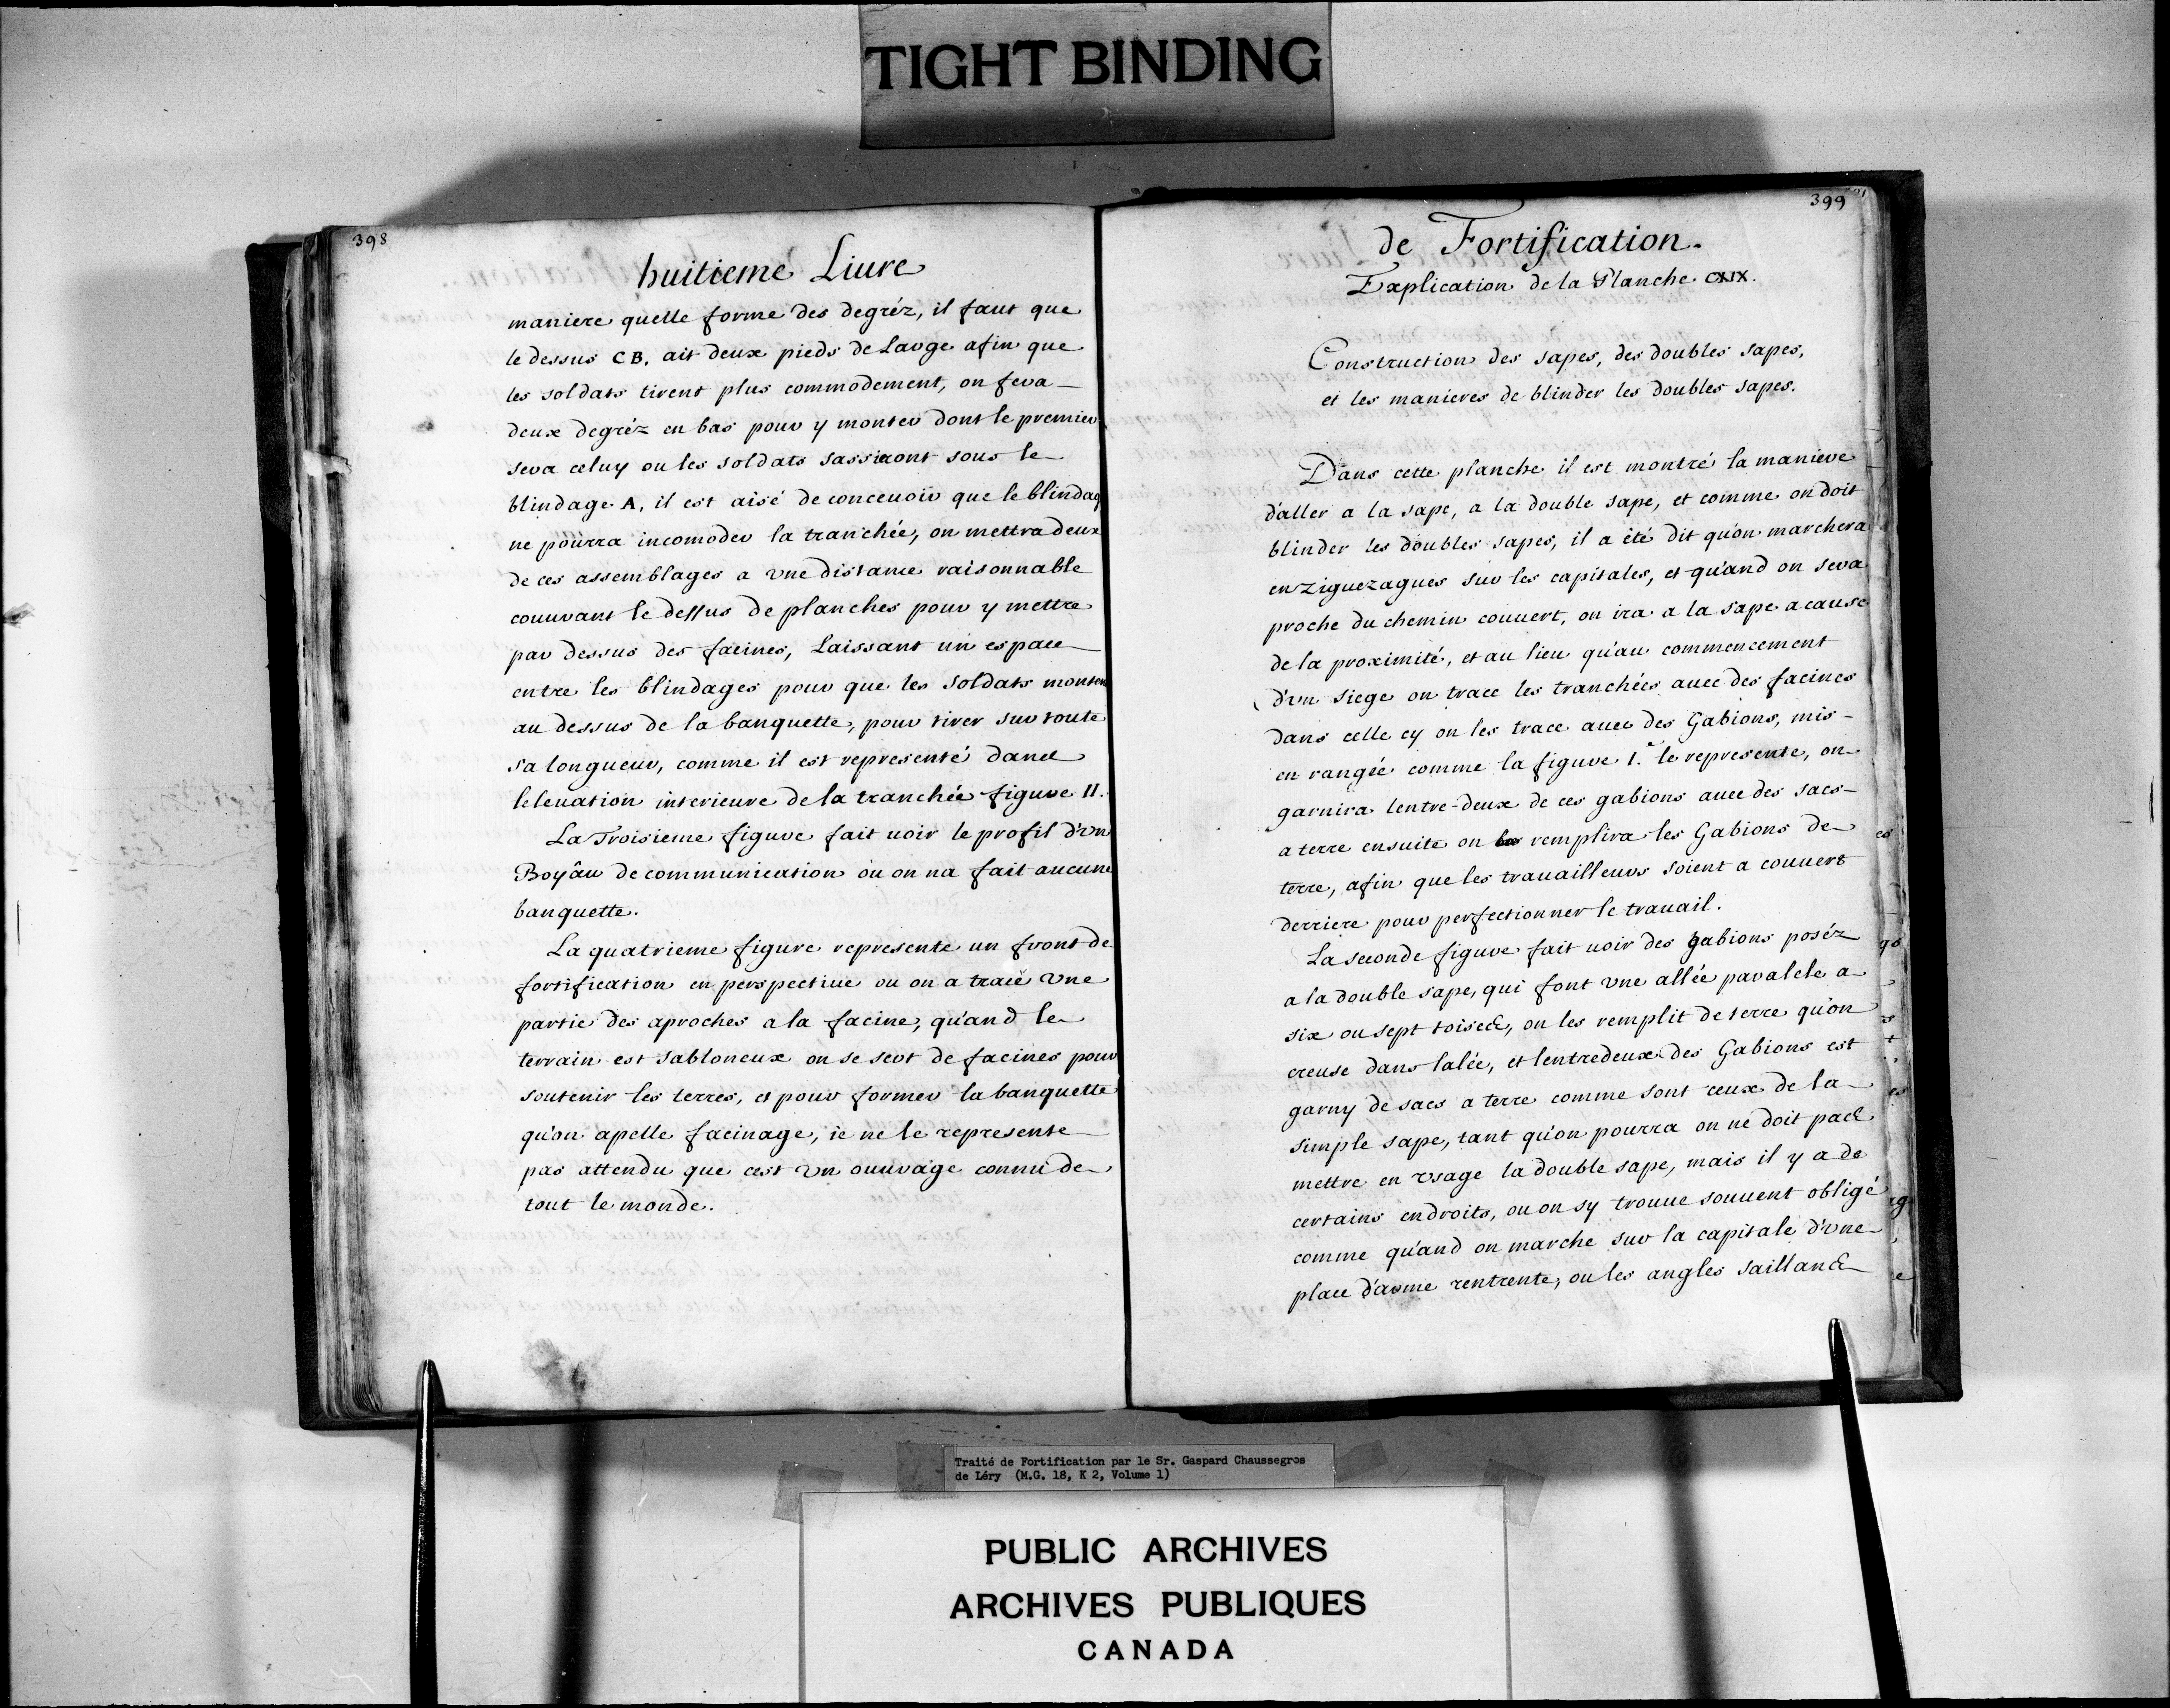 TIGHT BINDING
398
huitieme Liure
maniere quelle forme des degréz, il faut que
le dessus CB. ait deux pieds de Large afin que
les soldats tirent plus commodement, on fera
deux degréz en bas pour y monter dont le premier
sera celuy ou les soldats sassieront sous le
blindage A, il est aisé de conceuoir que le blindag
ne pourra incomoder la tranchée, on mettra deux
de ces assemblages a vne distance raisonnable
couurant le dessus de planches pour y mettre
par dessus des facines, Laissant un espace
entre les blindages pour que les soldats montent
au dessus de la banquette, pour tirer sur toute
sa longueur, comme il est representé dans
leleuation interieure de la tranchée figure II.
La Troisieme figure fait uoir le profil d'vn
Boyâu de communication ou on na fait aucune
banquette.
La quatrieme figure represente un front de
fortification en perspectiue ou on a tracé vne
partie des aproches a la facine, qu'and le
terrain est sabloneux on se sert de facines pour
soutenir les terres, et pour former la banquette
qu'on apelle facinage, ie ne le represente
pas attendu que cest vn ouurage connu de
tout le monde.
399
de Fortification.
Explication de la Planche CXIX.
Construction des sapes, des doubles sapes,
et les manieres de blinder les doubles sapes.
Dans cette planche il est montré la maniere
d'aller a la sape, a la double sape, et comme on doit
blinder les doubles sapes, il a été dit qu'on marchera
en ziguezagues sur les capitales, et qu'and on sera
proche du chemin couuert, on ira a la sape a cause
de la proximité, et au lieu qu'au commencement
d'vn siege on trace les tranchées auec des facines
dans celle cy on les trace auec des Gabions, mis
en rangée comme la figure 1.e le represente, on
garnira lentre-deux de ces gabions auec des sacs
a terre ensuite on remplira les Gabions de
terre, afin que les trauailleurs soient a couuert
derriere pour perfectionner le trauail.
La seconde figure fait uoir des gabions poséz
a la double sape, qui font vne allée paralele a
six ou sept toises, on les remplit de terre qu'on
creuse dans lalée, et lentredeux des Gabions est
garny de sacs a terre comme sont ceux de la
simple sape, tant qu'on pourra on ne doit pas
mettre en vsage la double sape, mais il y a de
certains endroits, ou on sy trouue souuent obligé
comme qu'and on marche sur la capitale d'vne
place d'arme rentrente, ou les angles saillans
Traité de Fortification par le Sr. Gaspard Chaussegros
de Léry (M.G. 18, K 2, Volume 1)
PUBLIC ARCHIVES
ARCHIVES PUBLIQUES
CANADA